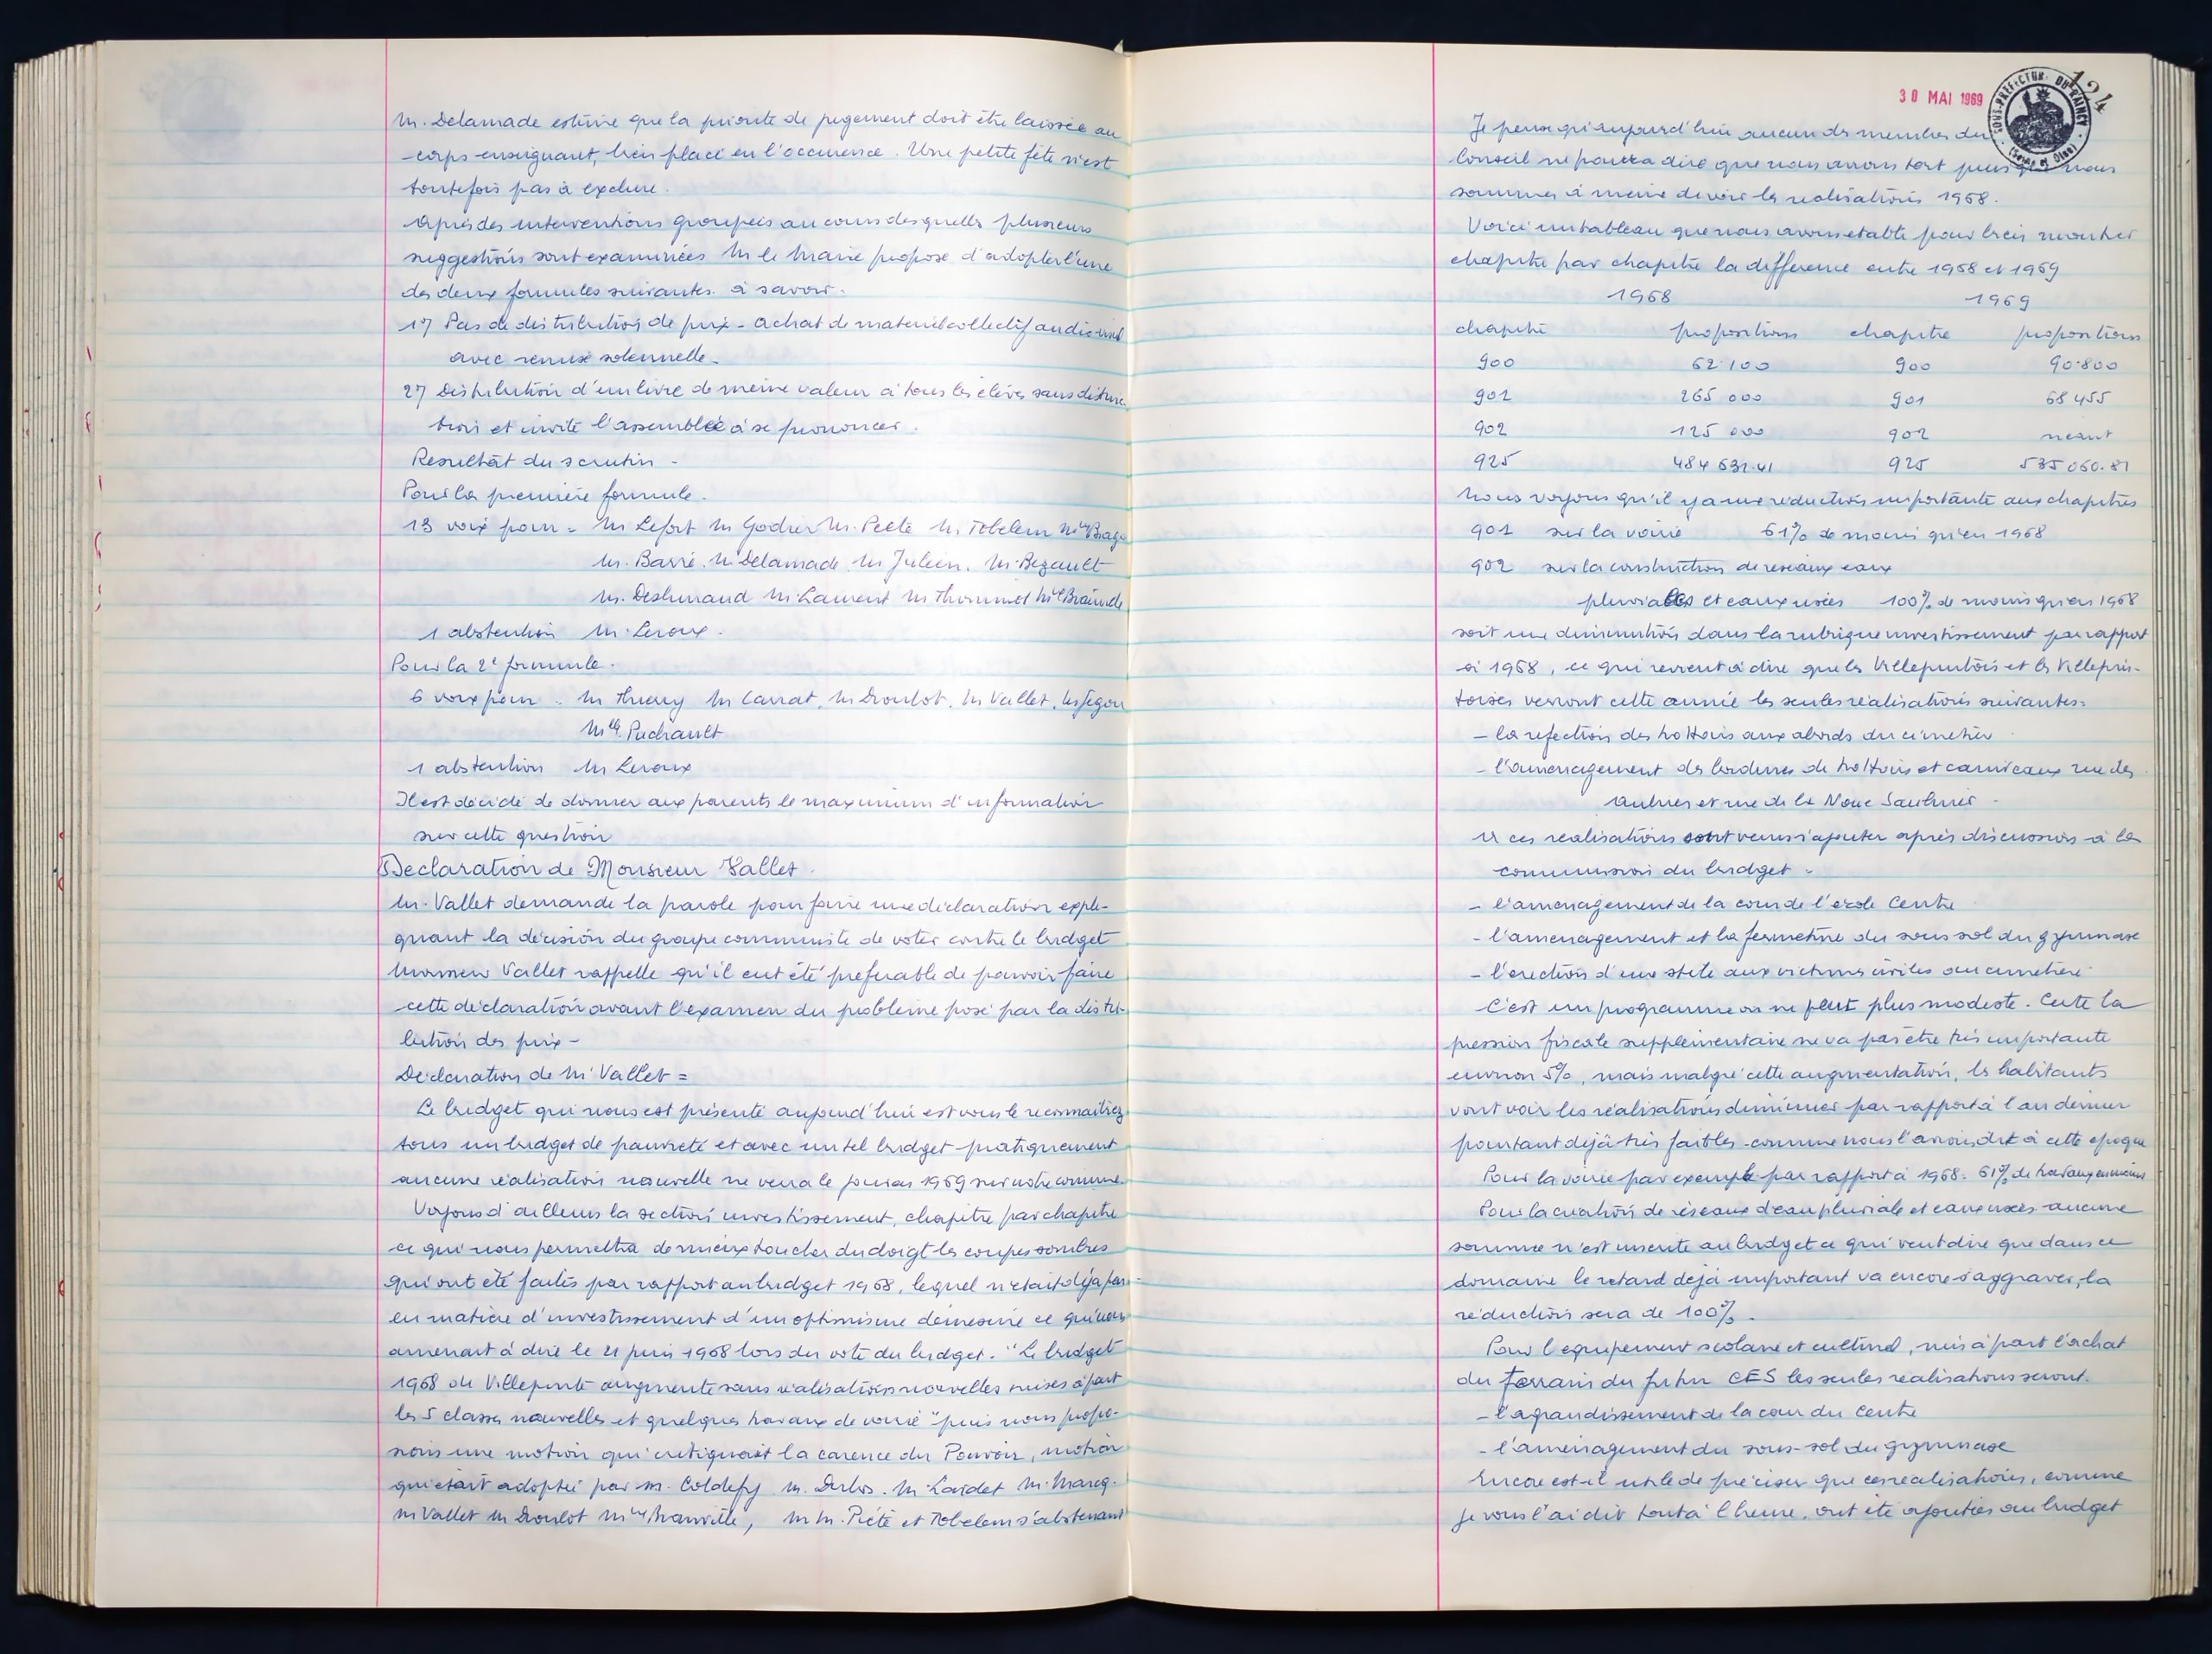 M. Delamade estime que la priorité de jugement doit être laissée au
corps enseignant, bien placé en l'occurence. Une petite fête n'est
toutefois pas à exclure.
Après des interventions groupées au cours desquelles plusieurs
suggestions sont examinées M le Maire propose d'adopter l'une
des deux formules suivantes à savoir.
1°/ Pas de distribution de prix - achat de materiel collectif audio visuel
avec remise solennelle.
2°/ Distribution d'un livre de même valeur à tous les élèves sans distinc-
tion et invite l'assemblée à se prononcer.
Resultat du scrutin -
Pour la première formule.
13 voix pour = M Lefort M Godier M. Piété M. Tobelem Mme
M. Barré. M Delamade M Julien. M. Bezault
M. Deshmand M. Laurent M Thommet Mme
1 abstention M. Leroux.
Pour la 2e formule.
6 voix pour : M Thierry M Carrat, M Droulot, M Vallet, M Jegou
Mlle Puchault
1 abstention M Leroux
Il est décidé de donner aux parents le maximum d'information
sur cette question
Declaration de Monsieur Vallet.
M. Vallet demande la parole pour faire une déclaration expli-
quant la décision du groupe communiste de voter contre le budget
Monsieur Vallet rappelle qu'il eut été préferable de pouvoir faire
cette déclaration avant l'examen du problème posé par la distri-
bution des prix -
Déclaration de M Vallet =
Le budget qui nous est présenté aujourd'hui est vous le reconnaitrez
tous un budget de pauvreté et avec un tel budget pratiquement
aucune réalisation nouvelle ne verra le jour en 1969 sur notre commune.
Voyons d'ailleurs la section investissement, chapitre par chapitre
ce qui nous permettra de mieux toucher du doigt les coupes sombres
qui ont été faites par rapport au budget 1968, lequel n'était déjà pas
en matière d'investissement d'un optimisme démesuré ce qui nous
amenait à dire le 21 juin 1968 lors du vote du budget. "Le budget
1968 de Villepinte augmente sans réalisations nouvelles mises à part
les 5 classes nouvelles et quelques travaux de voirie" puis nous propo-
sions une motion qui critiquait la carence du Pouvoir, motion
qui était adoptée par M. Coldefy M. Dubos. M Lardet M. Marcq.
M Vallet M Droulot Mme, M M. Piété et Tobelem s'abstenant
30 MAI 1969
SOUS-PREFECTURE DU RAINCY
(Seine et Oise)
124
Je pense qu'aujourd'hui aucun des membres du
Conseil ne pourra dire que nous avons tort puisque nous
sommes à même de voir les realisations 1968.
Voici un tableau que nous avons etabli pour bien montrer
chapitre par chapitre la difference entre 1968 et 1969
1968 1969
chapitre propositions chapitre propositions
900 62.100 900 90.800
901 265 000 901 68 455
902 125 000 902 néant
925 484 632.41 925 535 060.81
Nous voyons qu'il y a une reduction importante aux chapitres
901 sur la voirie 61% de moins qu'en 1968
902 sur la construction de reseaux eaux
pluviales et eaux usées 100% de moins qu'en 1968
soit une diminution dans la rubrique investissement par rapport
à 1968, ce qui revient à dire que les Villepintois et les Villepin-
toises verront cette année les seules réalisations suivantes:
- la refection des trottoirs aux abords du cimetière
- l'amenagement des bordures de trottoirs et caniveaux rue des
aulnes et rue de la Noue Saulnier -
A ces realisations sont venus s'ajouter après discussion à la
commission du budget -
- l'amenagement de la cour de l'école Centre
- l'amenagement et la fermeture du sous sol du gymnase
- l'erection d'une stèle aux victimes civiles au cimetière
C'est un programme on ne peut plus modeste. Certe la
pression fiscale supplémentaire ne va pas être très importante
environ 5%, mais malgré cette augmentation, les habitants
vont voir les réalisations diminuer par rapport à l'an dernier
pourtant déjà très faibles comme nous l'avons dit à cette epoque
Pour la voirie par exemple par rapport à 1968. 61% de travaux en moins
Pour la création de réseaux d'eau pluviale et eaux usées aucune
somme n'est inscrite au budget ce qui veut dire que dans ce
domaine le retard déjà important va encore s'aggraver, la
réduction sera de 100%.
Pour l'equipement scolaire et culturel, mis à part l'achat
du terrain du futur CES les seules realisations seront.
- l'agrandissement de la cour du Centre
- l'aménagement du sous-sol du gymnase
Encore est-il utile de préciser que ces realisations, comme
je vous l'ai dit tout à l'heure, ont été ajoutées au budget